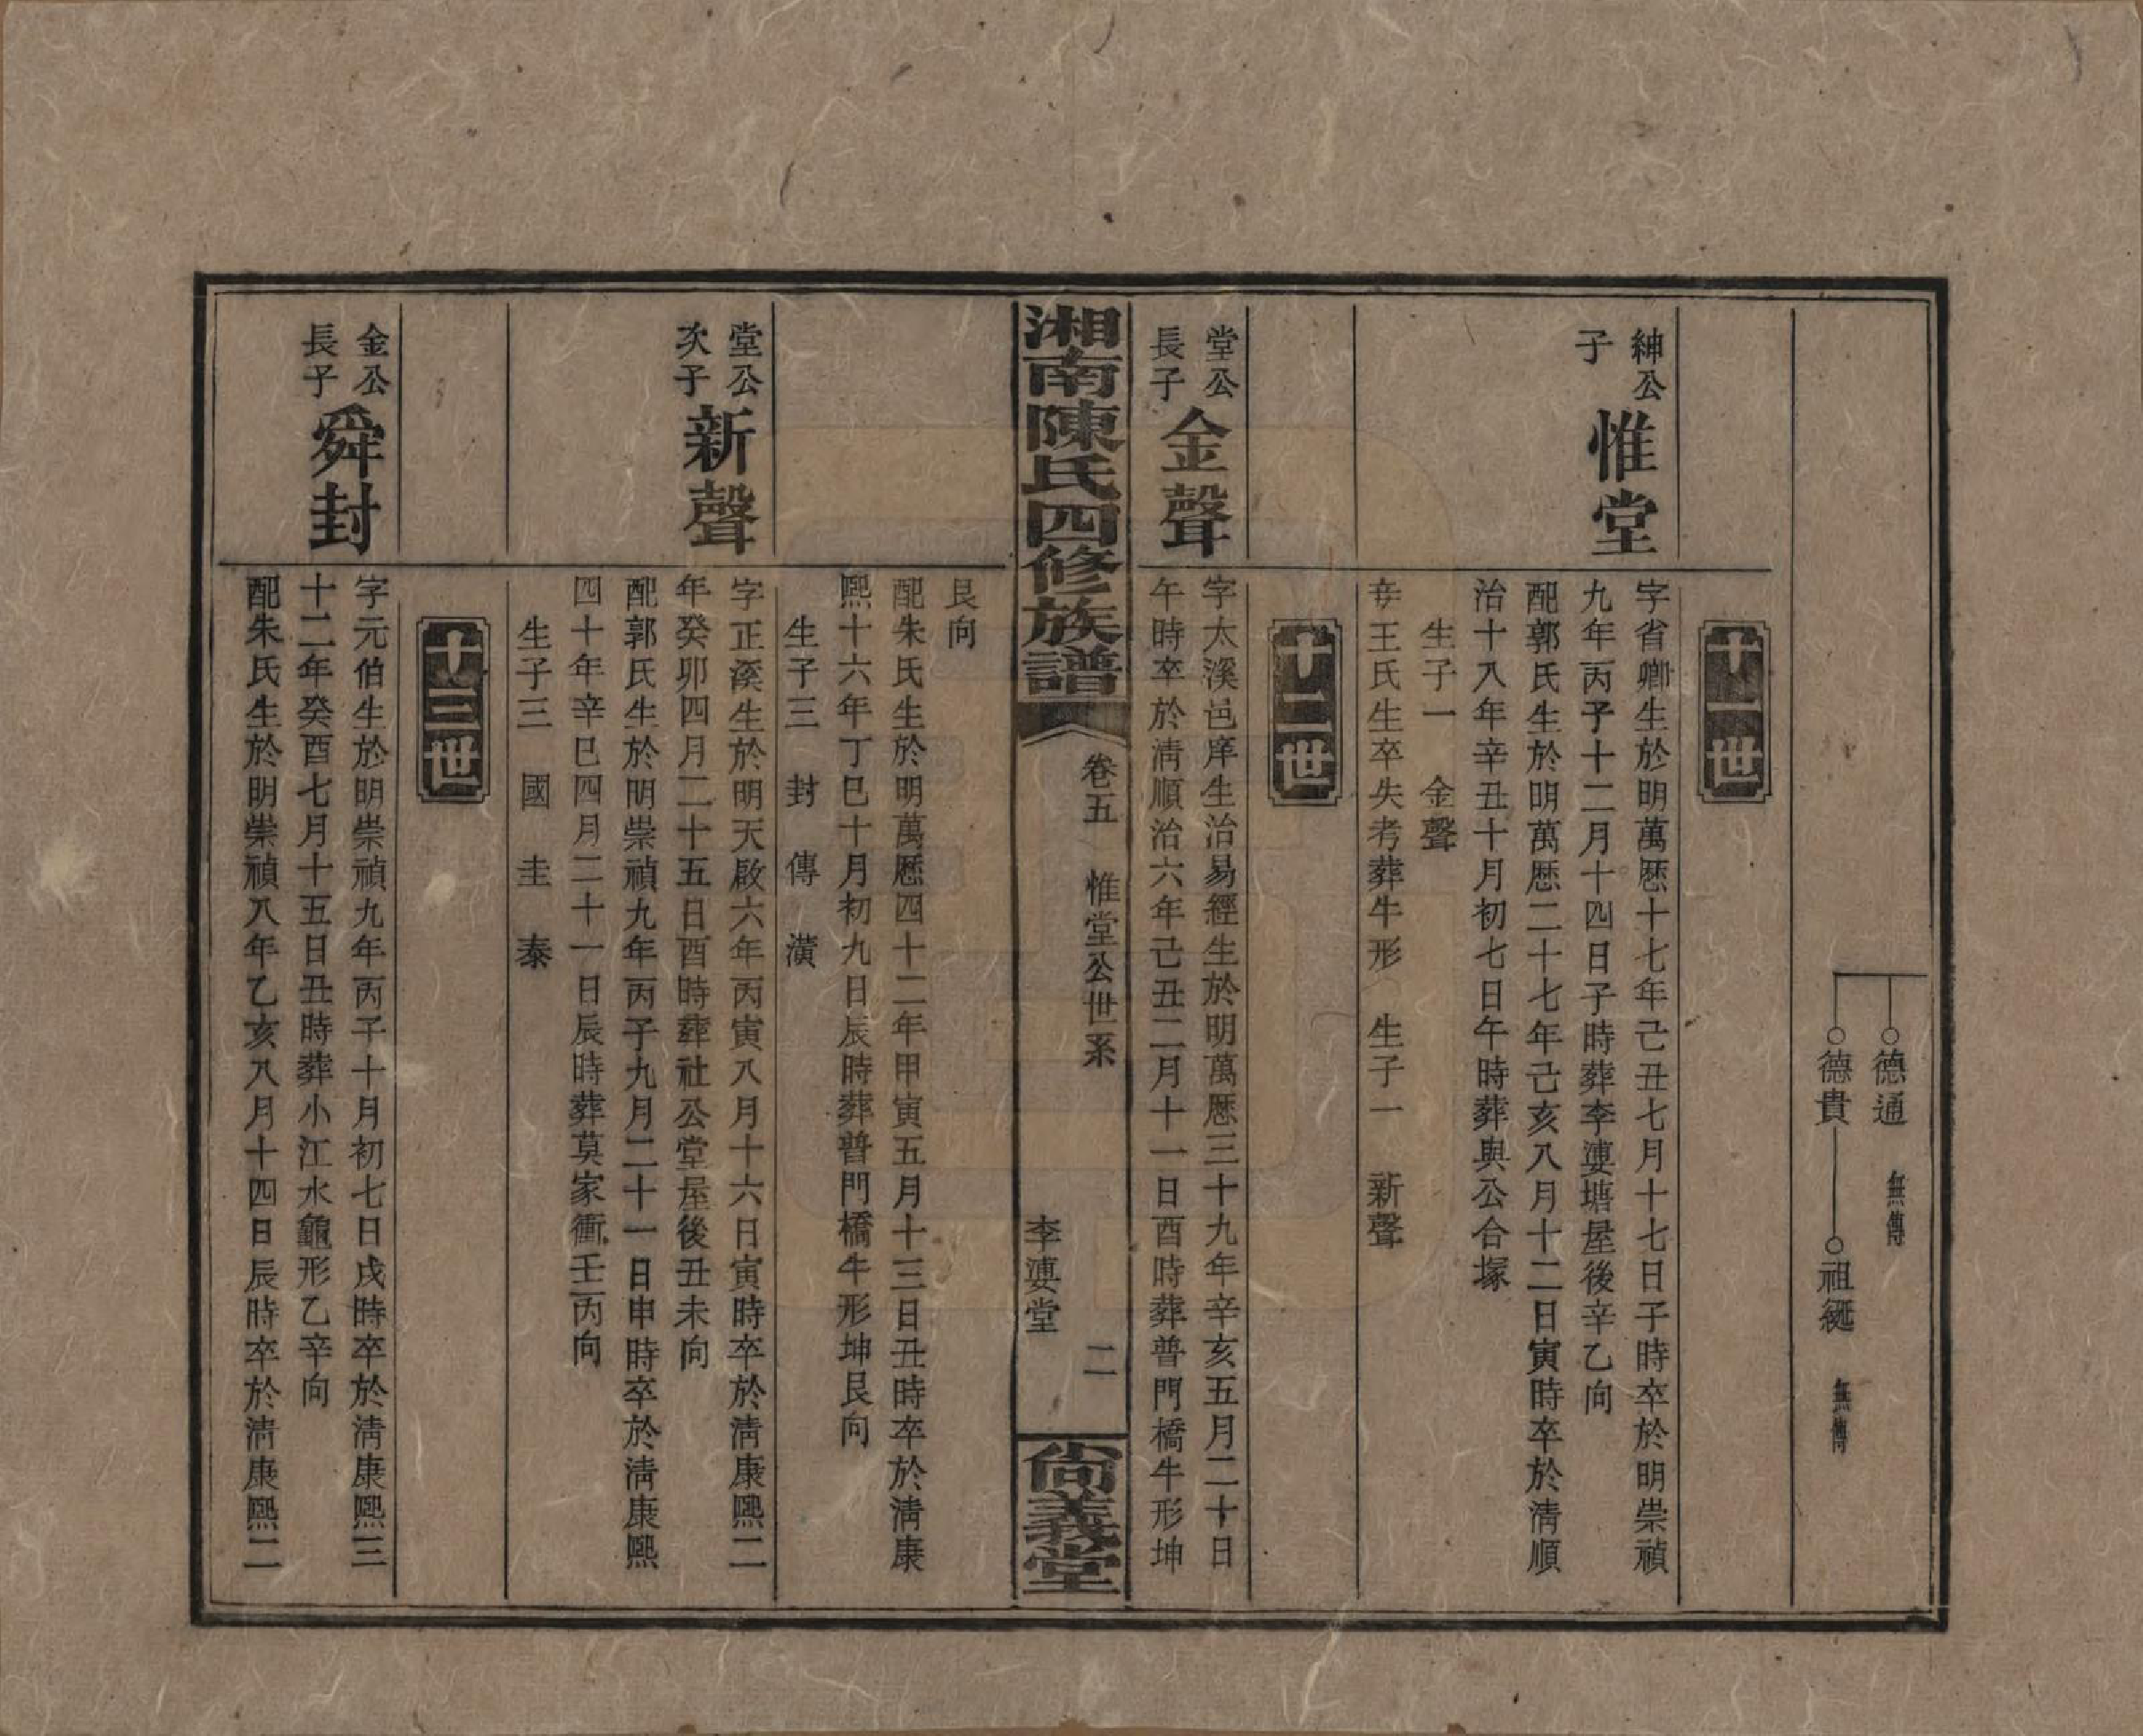 德通 無傳
德貴 祖綖 無傳
十一世
紳公
子
惟堂
字省卿生於明萬歷十七年己丑七月十七日子時卒於明崇禎
九年丙子十二月十四日子時葬李塘屋後辛乙向
配郭氏生於明萬歷二十七年己亥八月十二日寅時卒於淸順
治十八年辛丑十月初七日午時葬與公合塚
生子一 金聲
王氏生卒失考葬牛形 生子一 新聲
十二世
堂公
長子
金聲
字太溪邑庠生治易經生於明萬歷三十九年辛亥五月二十日
午時卒於淸順治六年己丑二月十一日酉時葬普門橋牛形坤
湘南陳氏四修族譜
卷五 惟堂公世系
二
李堂
尙義堂
艮向
配朱氏生於明萬歷四十二年甲寅五月十三日丑時卒於淸康
熙十六年丁巳十月初九日辰時葬普門橋牛形坤艮向
生子三 封 傳 潢
堂公
次子
新聲
字正溪生於明天啟六年丙寅八月十六日寅時卒於淸康熙二
年癸卯四月二十五日酉時葬社公堂屋後丑未向
配郭氏生於明崇禎九年丙子九月二十一日申時卒於淸康熙
四十年辛巳四月二十一日辰時葬莫家衝壬丙向
生子三 國 圭 泰
十三世
金公
長子
舜封
字元伯生於明崇禎九年丙子十月初七日戌時卒於淸康熙三
十二年癸酉七月十五日丑時葬小江水龜形乙辛向
配朱氏生於明崇禎八年乙亥八月十四日辰時卒於淸康熙二